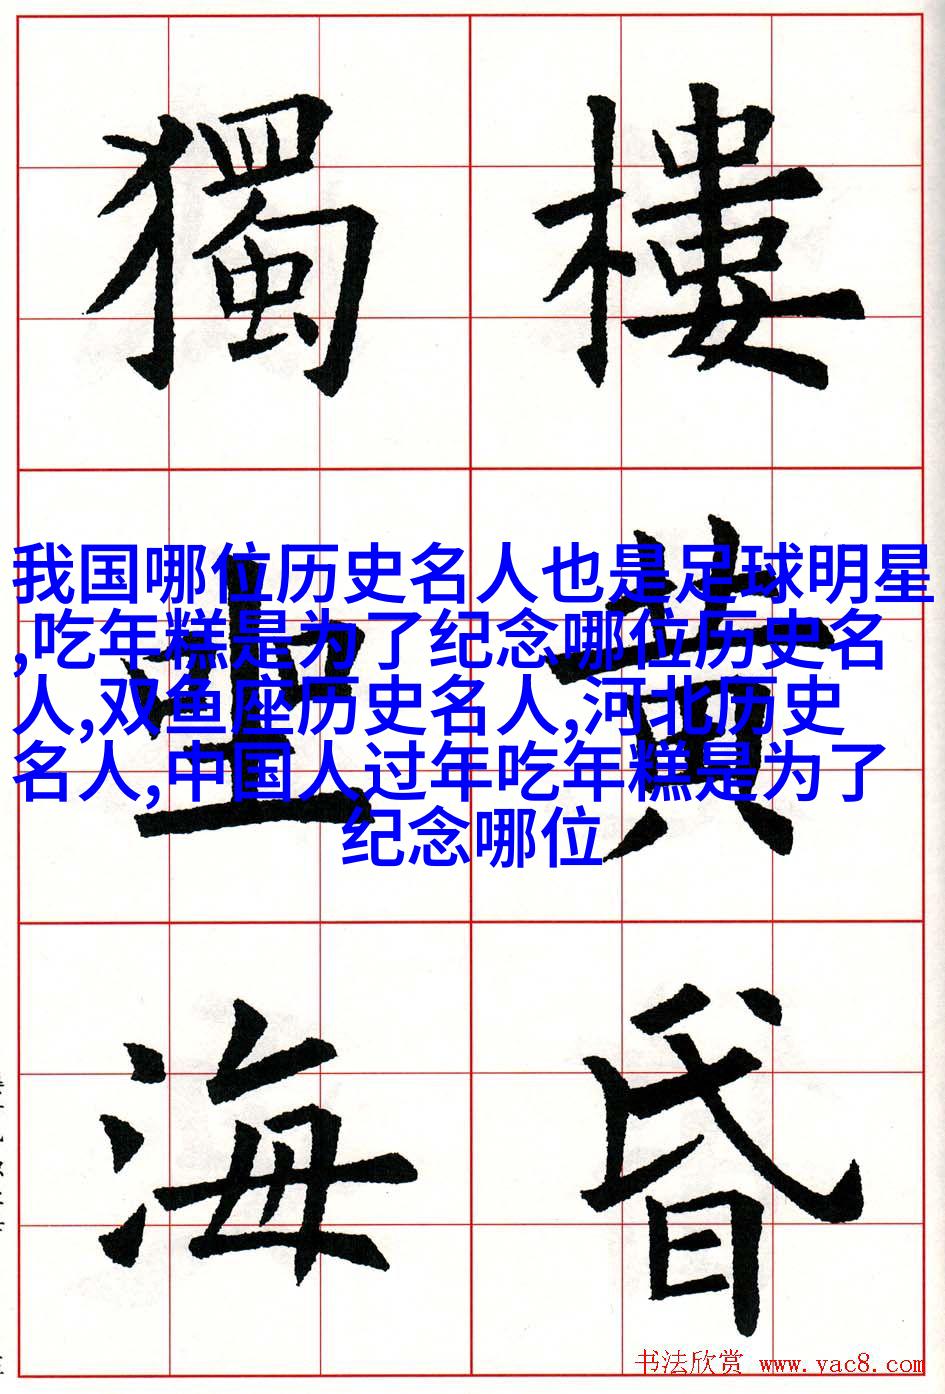 樓黄昏
獨坐海
我国哪位历史名人也是足球明星
,吃年糕是为了纪念哪位历史名
人,双鱼座历史名人,河北历史
名人,中国人过年吃年糕是为了
纪念哪位
书法欣赏 www.yac8.com